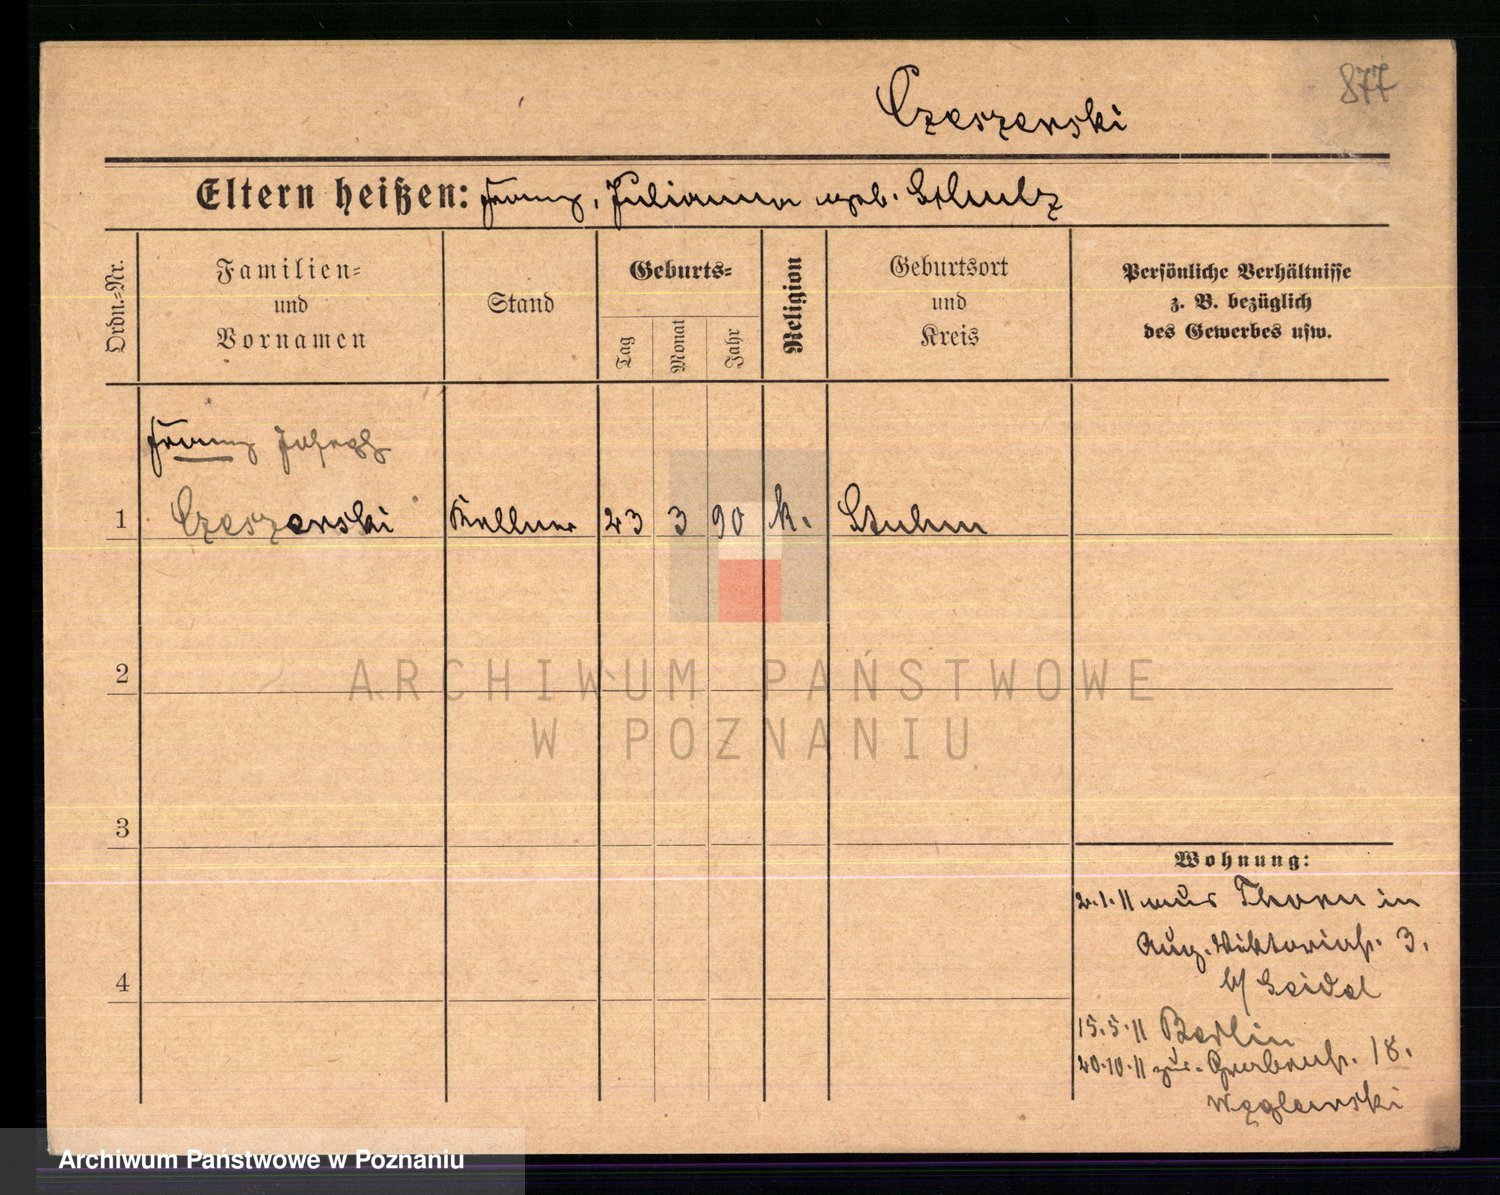 877
Czeszewski
Eltern heißen: Franz, Julianna geb. Schulz
Ordn.-Nr.
Familien-
und
Vornamen
Stand
Geburts-
Tag
Monat
Jahr
Religion
Geburtsort
und
Kreis
Persönliche Verhältnisse
z. B. bezüglich
des Gewerbes usw.
Franz Joseph
1 Czeszewski Kellner 23 3 90 k. Stuhm
2
3
4
Wohnung:
2.1.11 aus Thorn in
Aug. Viktoriastr. 3.
b/ Seidel
15.5.11 Berlin
20.10.11 zur. Grabenstr. 18.
Węglewski
ARCHIWUM PAŃSTWOWE
W POZNANIU
Archiwum Państwowe w Poznaniu